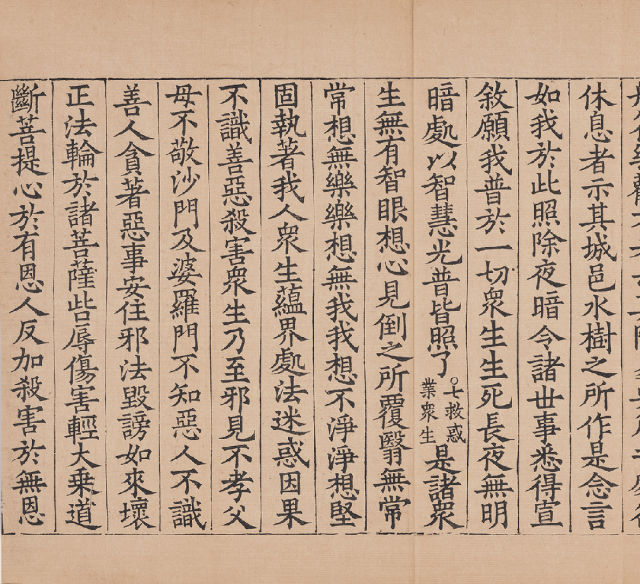 休息者示其城邑水樹之所作是念言
如我於此照除夜暗令諸世事悉得宣
敘願我普於一切衆生生死長夜無明
暗處以智慧光普皆照了。七救惑業衆生是諸衆
生無有智眼想心見倒之所覆翳無常
常想無樂樂想無我我想不淨淨想堅
固執著我人衆生蘊界處法迷惑因果
不識善惡殺害衆生乃至邪見不孝父
母不敬沙門及婆羅門不知惡人不識
善人貪著惡事安住邪法毀謗如來壞
正法輪於諸菩薩呰辱傷害輕大乗道
斷菩提心於有恩人反加殺害於無恩